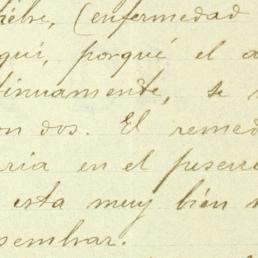 fiebre, (enfermedad
quí, porqué el a
tinuamente, se
on dos. El remed
aria en el peserre
esta muy bien
sembrar.